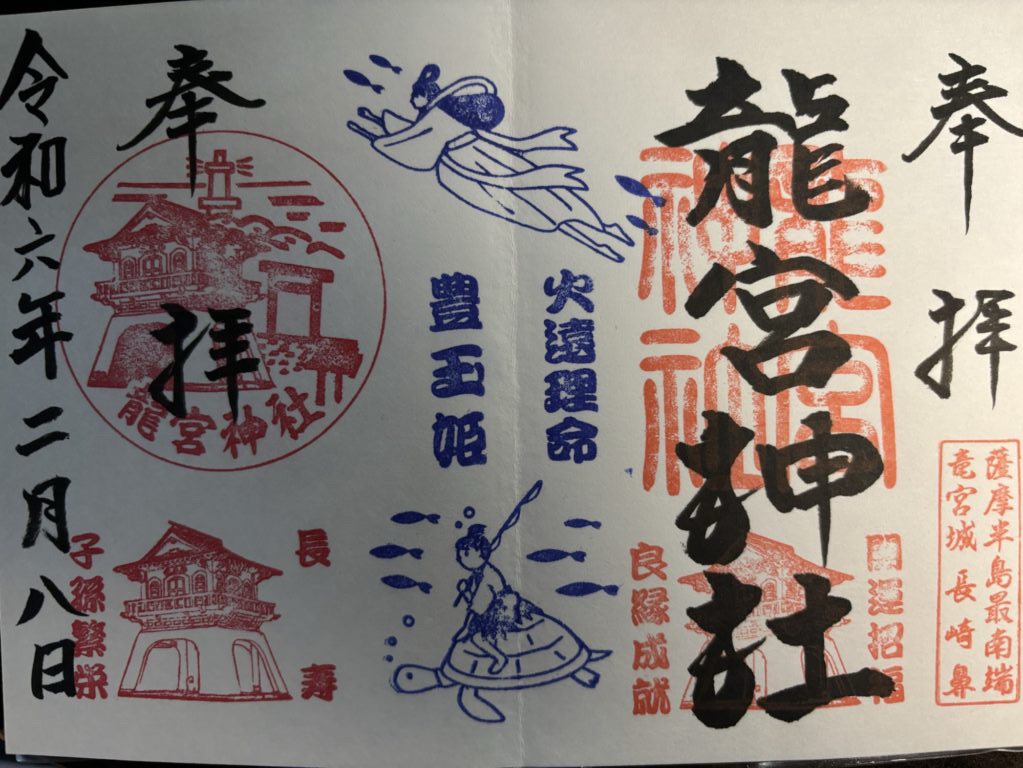 奉拝
薩摩半島最南端
竜宮城 長崎鼻
龍宮神社
龍宮
神社
開運招福
良縁成就
火遠理命
豊玉姫
奉拝
龍宮神社
長寿
子孫繁栄
令和六年二月八日